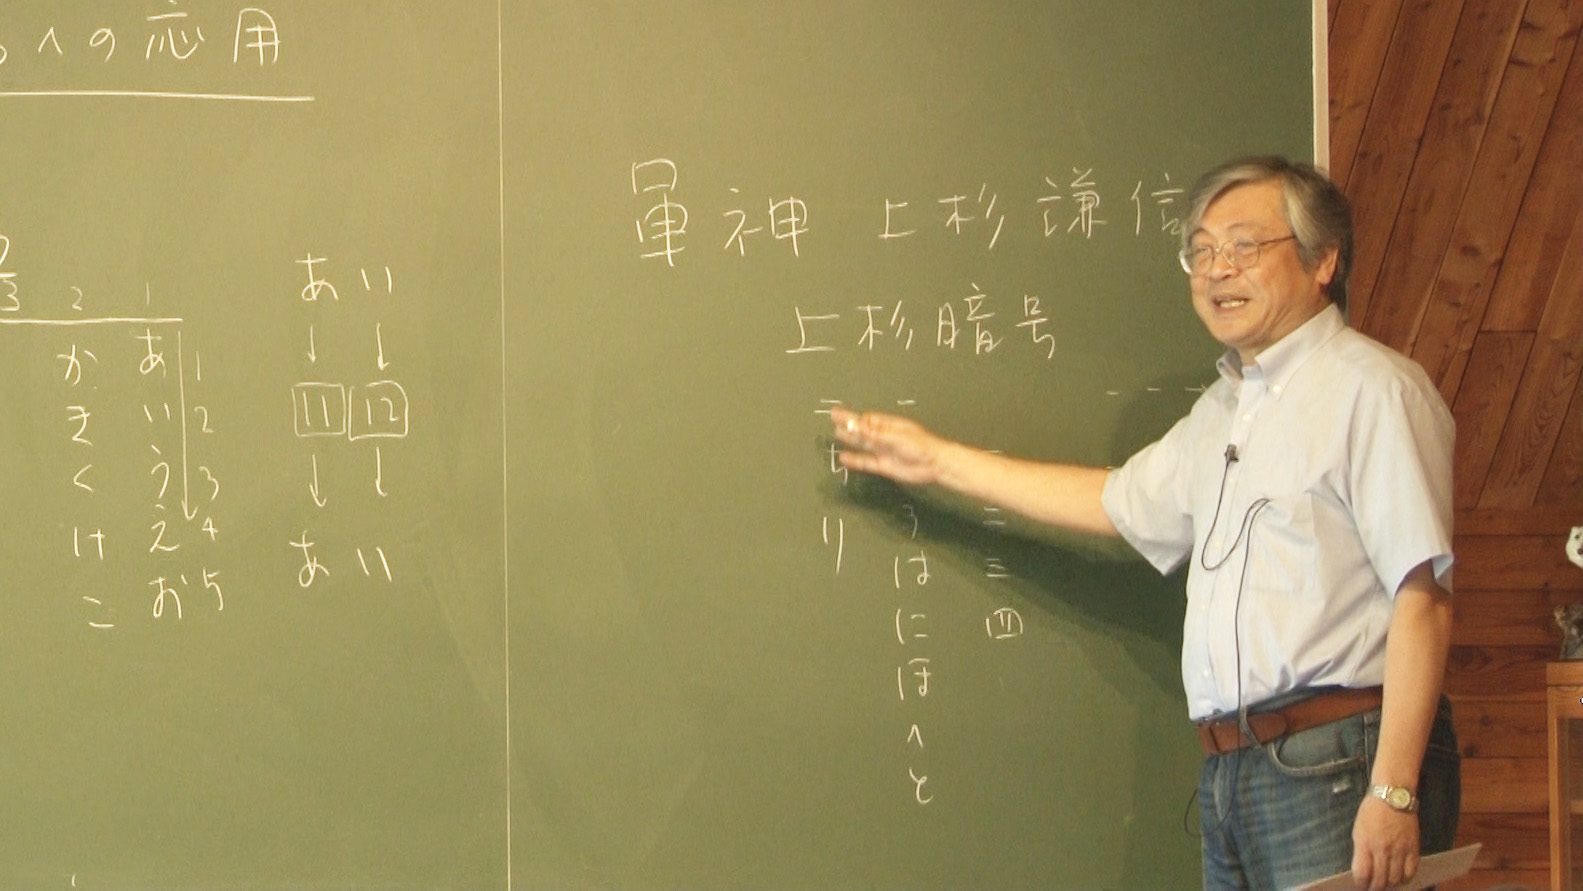 への応用
3 2 1
か あ 1
き い 2
く う 3
け え 4
こ お 5
あ い
↓ ↓
11 12
↓ ↓
あ い
軍神 上杉謙信
上杉暗号
二 一
ち
り ろ 二
は 三
に 四
ほ
へ
と